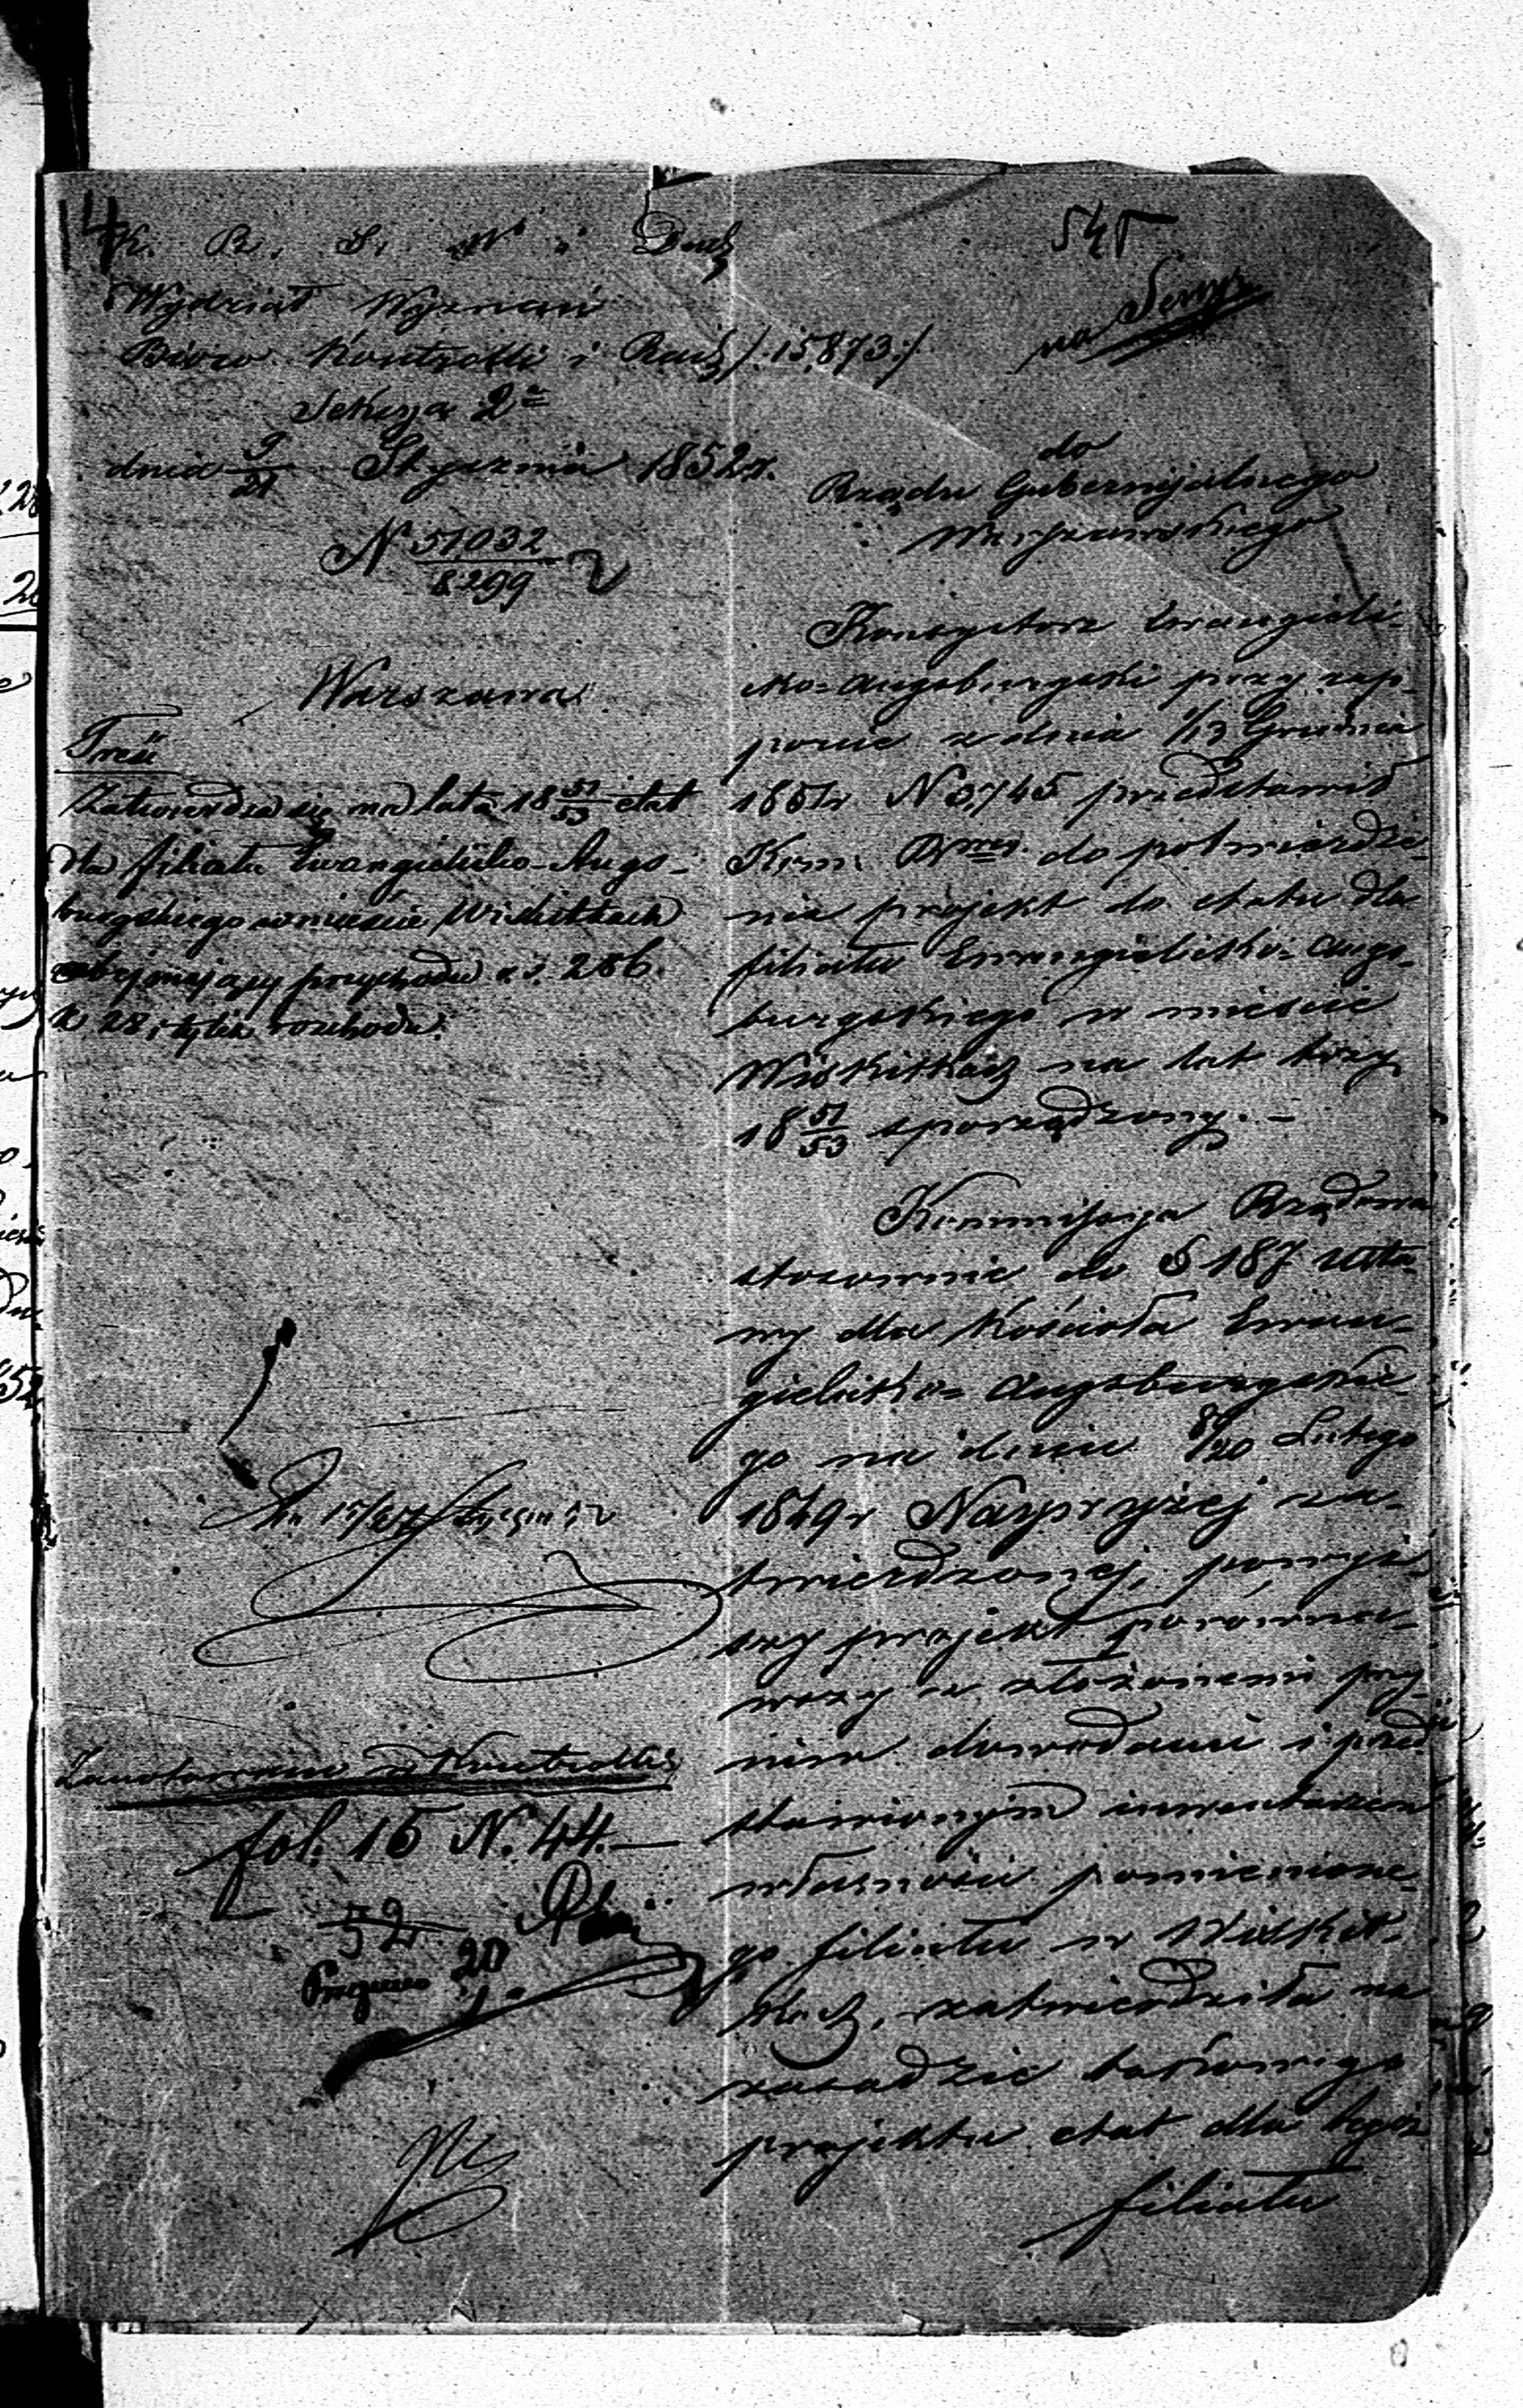 14
K. R. S. W. i Duch
Wydział Wyznań
Biuro Kontrolli i Rach /:15,873:/
Sekcya 2ª
dnia 9/21 Stycznia 1852 r.
N 51032/8299
Warszawa
Treść
Zatwierdza się na lata 18 51/53 etat
dla filiału Ewangielicko-Augs-
burgskiego w mieście Wiskitkach
obejmujący przychodu r.s. 256.
k 28, i tyleż rozchodu.
15/27 Stycznia
Zanotowano w Kontrolli
fol. 15 N. 44.—
52
20
545
na
do
Rządu Gubernijalnego
Warszawskiego
Konsystorz Ewangieli-
cko-Augsburgski przy rap-
porcie z dnia 1/13 Grudnia
1851 r N 3,745 przedstawił
Kom. Rząd. do potwierdze-
nia projekt do etatu dla
filiału Ewangielicko-Augs-
burgskiego w mieście
Wiskitkach na lat trzy
18 51/53 sporządzony.—
Kommissya Rządowa
stosownie do § 187 usta-
wy dla Kościoła Ewan-
gielicko-Augsburgskie-
go na dniu 8/20 Lutego
1849 r Najwyżej za-
twierdzonej, powyż-
szy projekt porówna-
wszy z złożonemi przy
nim dowodami i przed
stawionym inwentarzem
własności pomienione-
go filiału w Wiskit-
kach, zatwierdziła na
zasadzie takowego
projektu etat dla tegoż
filiału